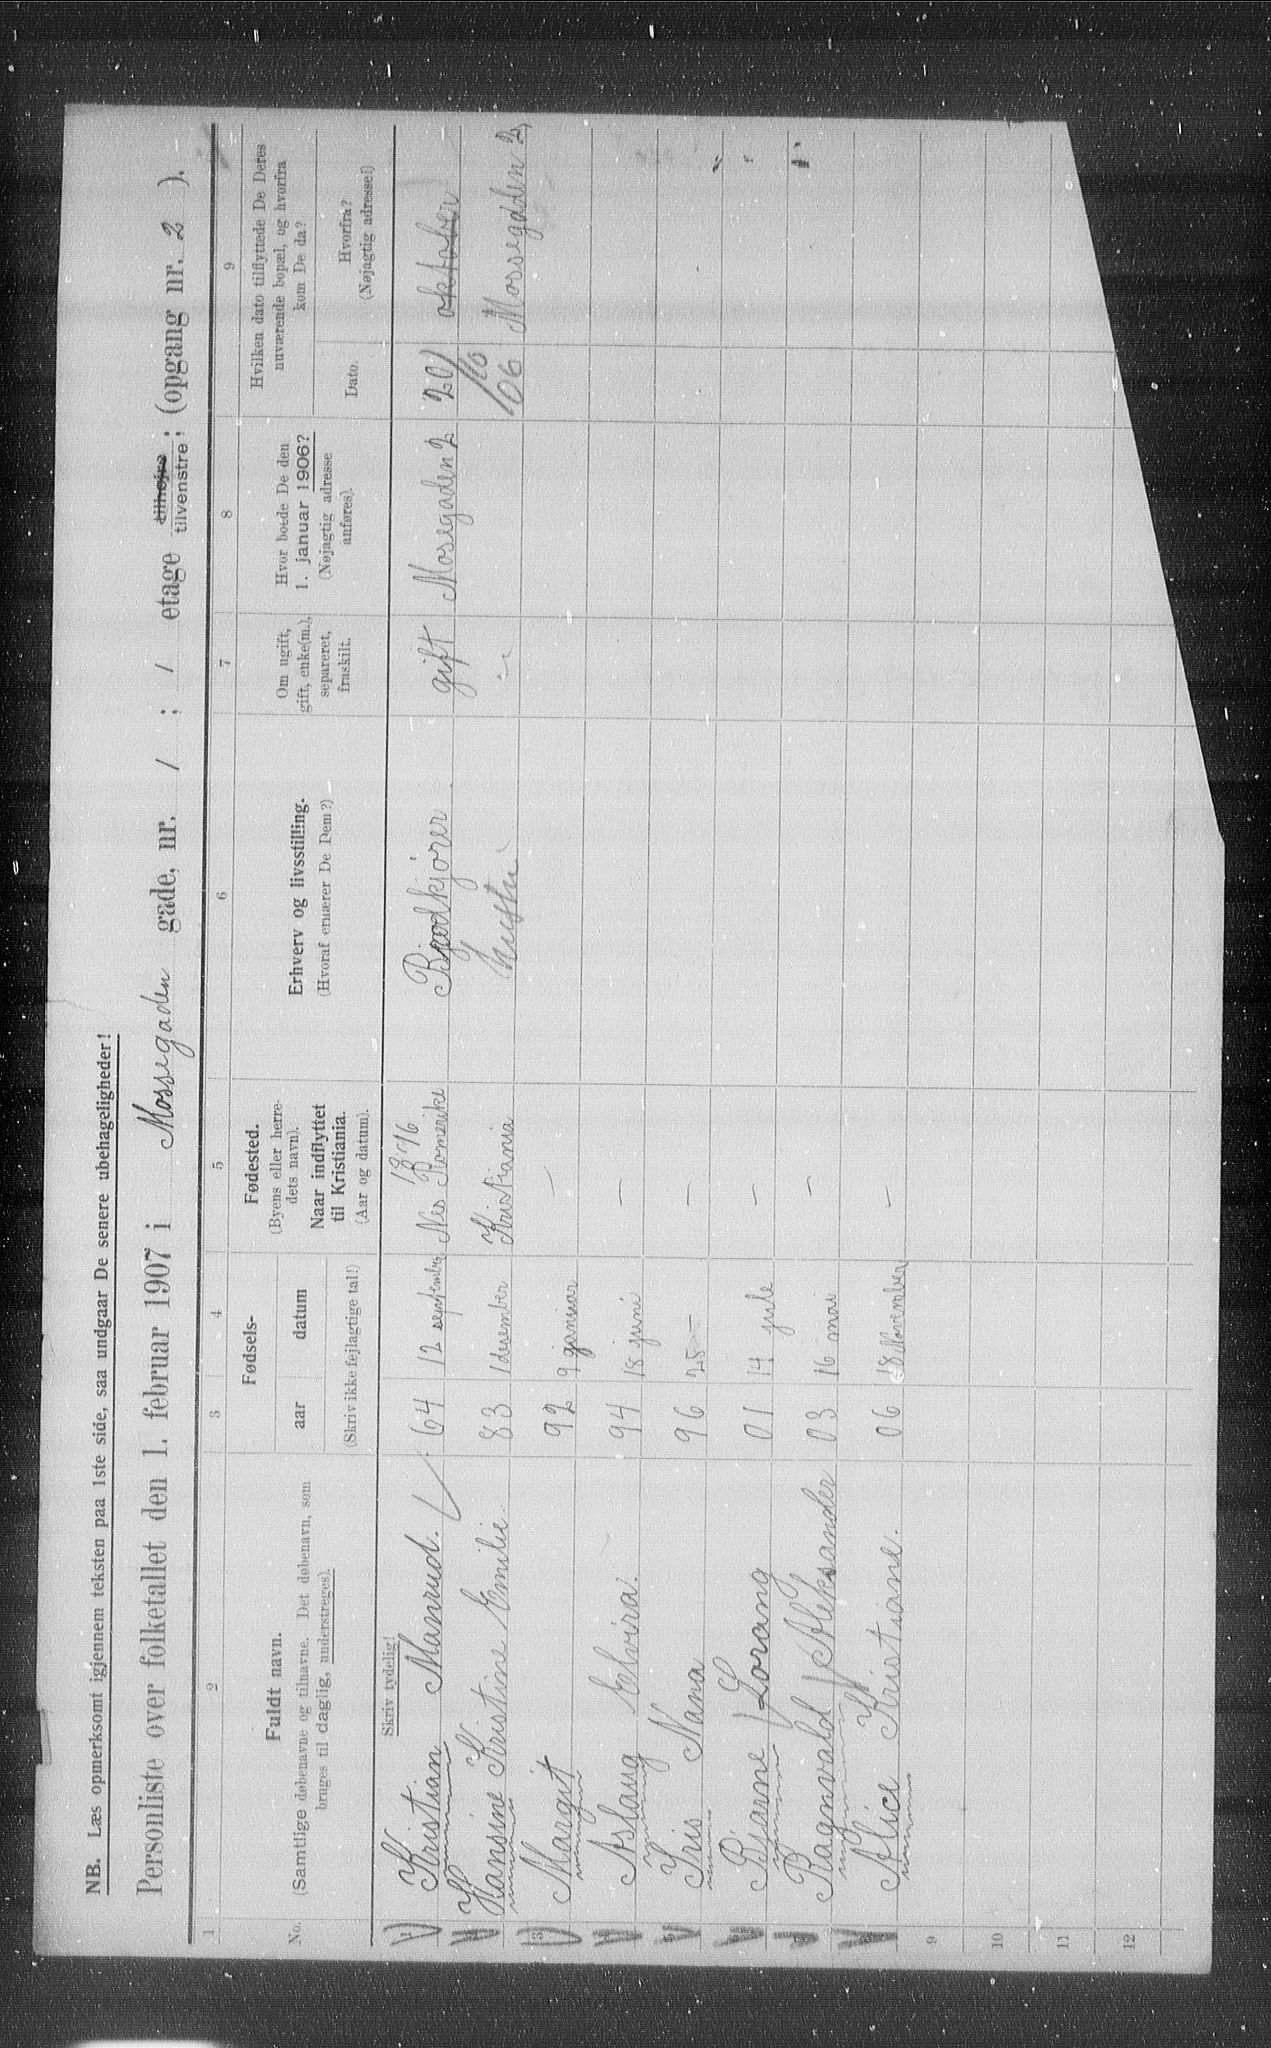 NB. Læs opmerksomt igjennem teksten paa 1ste side, saa undgaar De senere ubehageligheder!
Personliste over folketallet den 1. februar 1907 i Mossegaden gade, nr. 1 ; 1 etage tilhøjre tilvenstre; (opgang nr. 2 ).
1 2 3 4 5 6 7 8 9
No.
Fuldt navn.
(Samtlige døbenavne og tilnavne. Det døbenavn, som bruges til daglig, understreges).
Fødsels-
aar datum
(Skriv ikke fejlagtige tal!)
Fødested.
(Byens eller herredets navn).
Naar indflyttet til Kristiania.
(Aar og datum).
Erhverv og livsstilling.
(Hvoraf ernærer De Dem?)
Om ugift, gift, enke(m.), separeret, fraskilt.
Hvor boede De den 1. januar 1906?
(Nøjagtig adresse anføres).
Hvilken dato tilflyttede De Deres nuværende bopæl, og hvorfra kom De da?
Dato.
Hvorfra?
(Nøjagtig adresse!)
Skriv tydelig!
1 Kristian Manrud. 64 12 september 1876 Nes Romerike gift Mosegaden 2 20/10 06 oktober
Hansine Kristine Emilie. 83 1 desember Kristiania Hustru Mossegaden 2
3 Margit 92 9 januar —
Aslaug Elvira. 94 18 juni —
Iris Nana 96 28 — —
Bjarne Lorang 01 14 jule —
Ragnvald Aleksander 03 16 mai —
Alice Kristiane. 06 18 November —
9
10
11
12